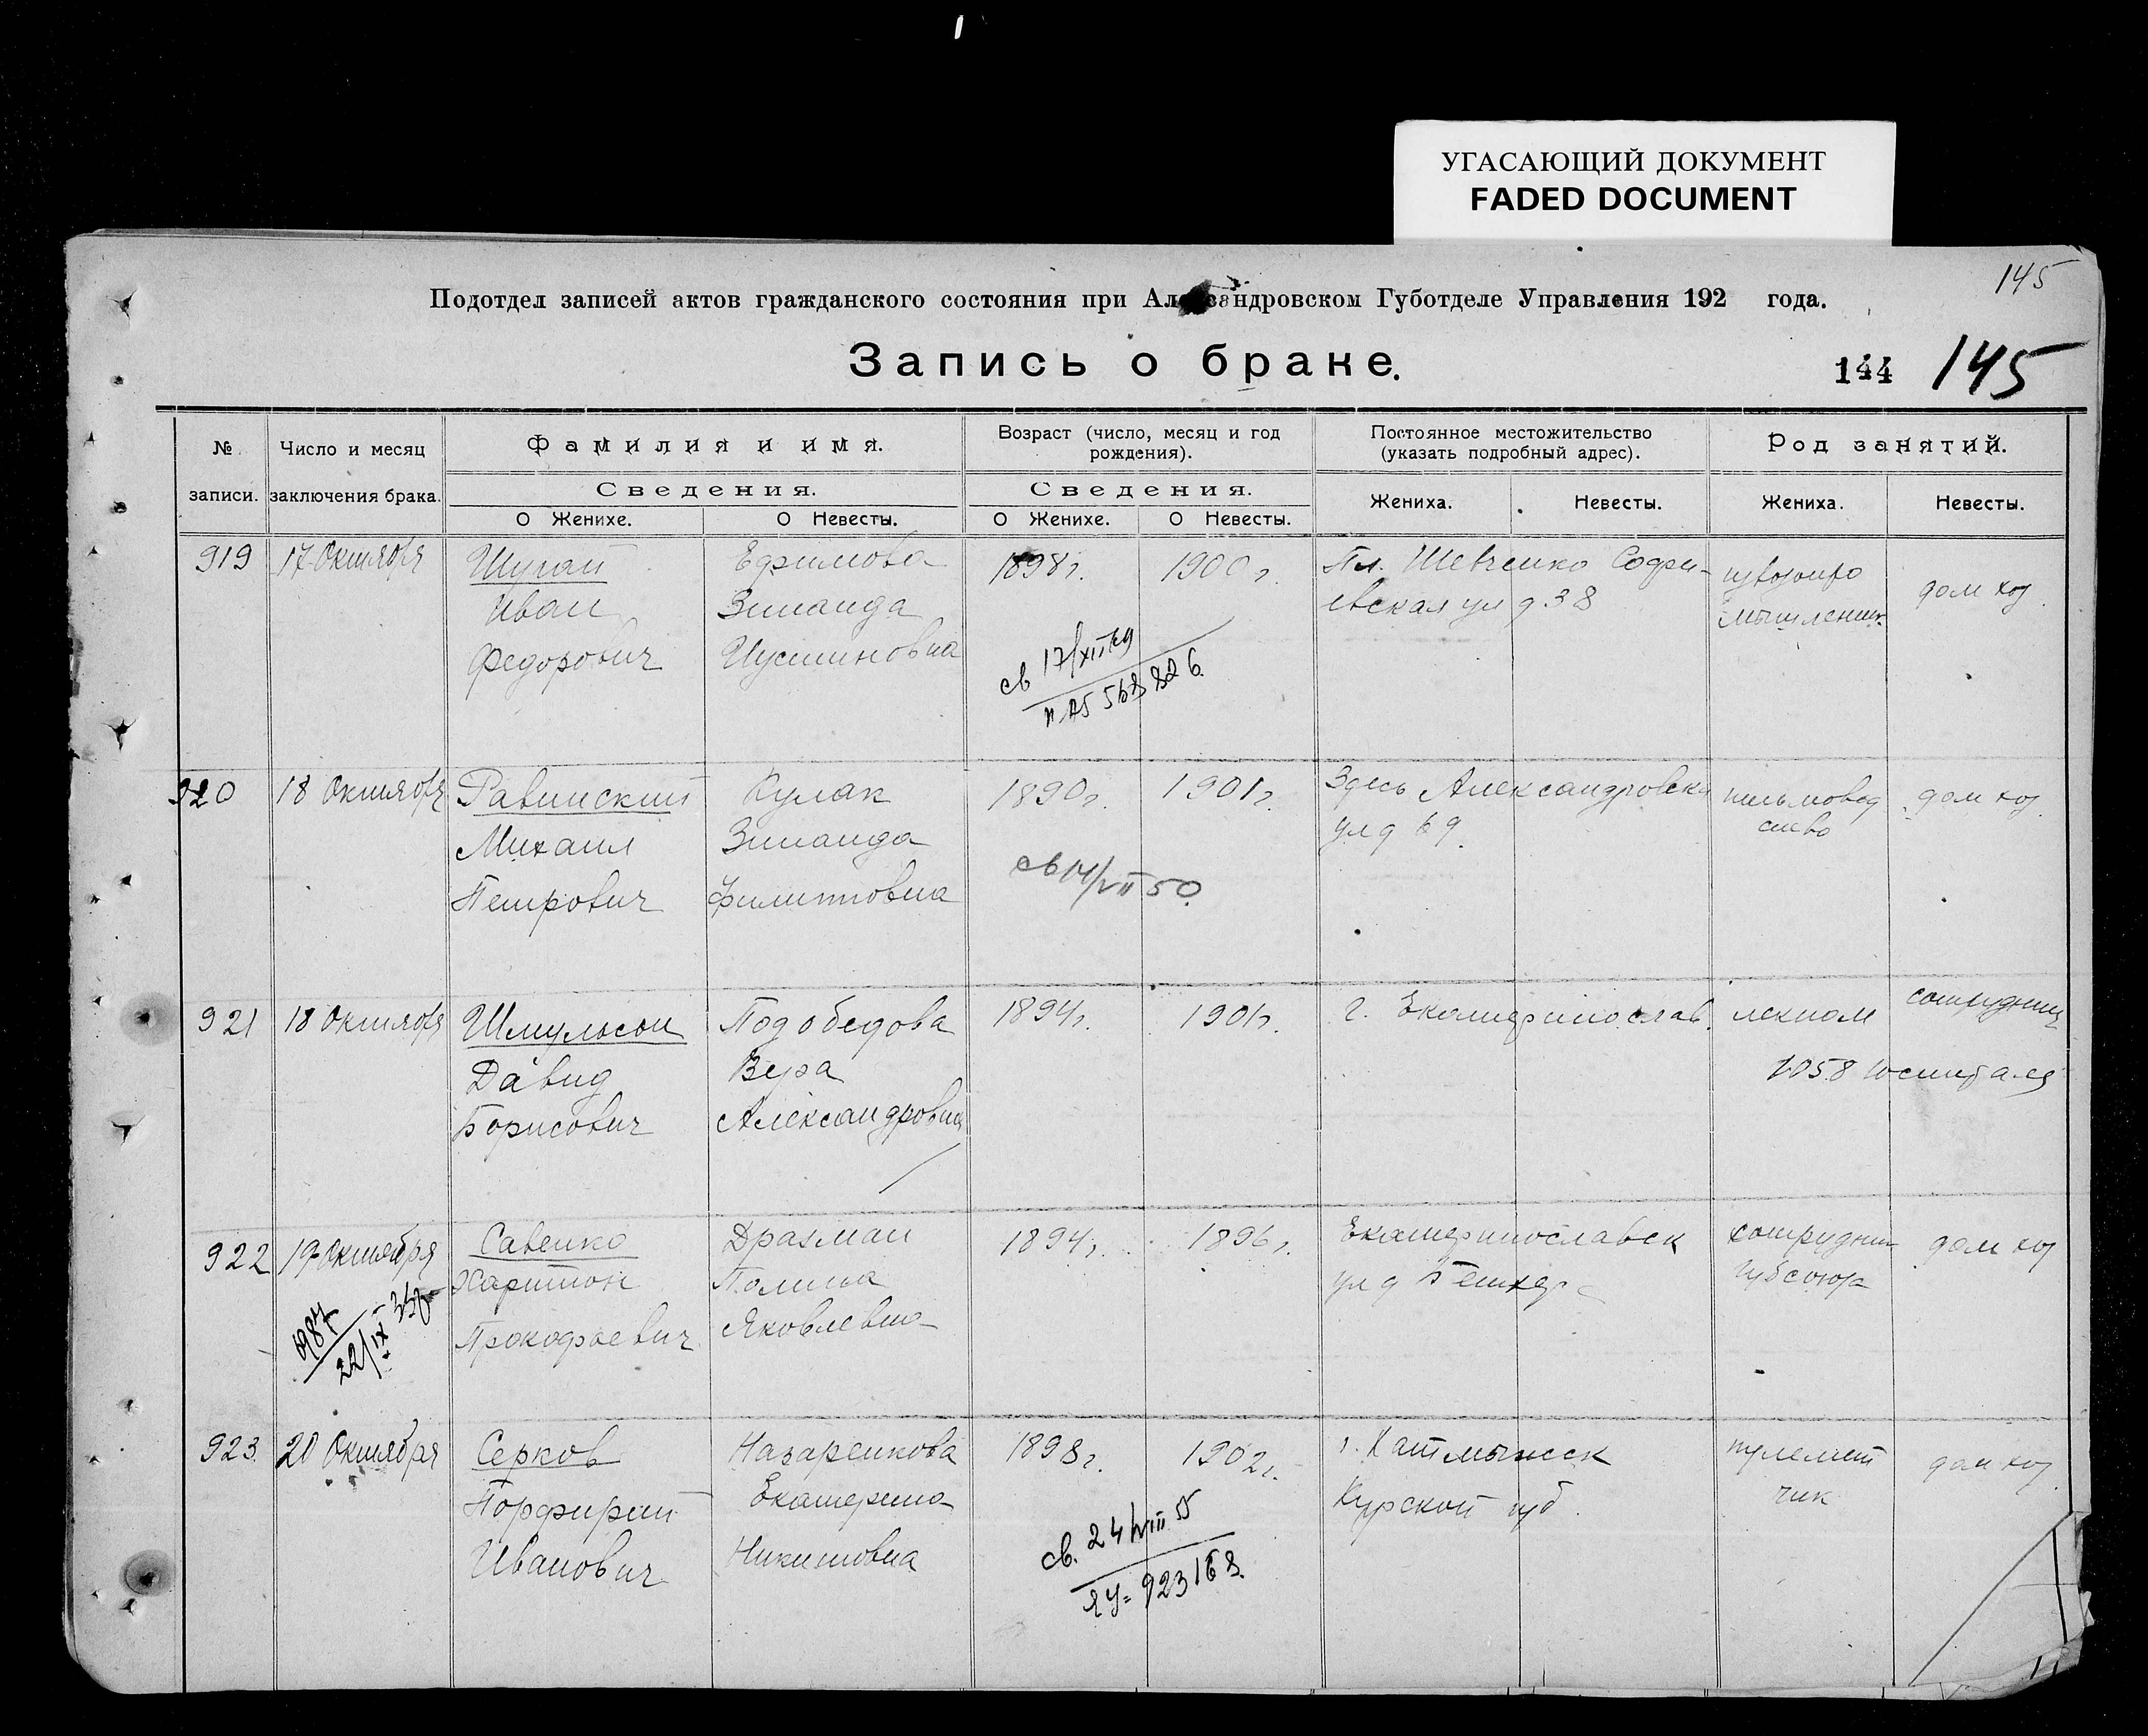 УГАСАЮЩИЙ ДОКУМЕНТ
FADED DOCUMENT
145
Подотдел записей актов гражданского состояния при Александровском Губотделе Управления 192 года.
Запись о браке.
144 145
№ записи.
Число и месяц заключения брака.
Фамилия и имя.
Сведения.
О Женихе. О Невесты.
Возраст (число, месяц и год рождения).
Сведения.
О Женихе. О Невесты.
Постоянное местожительство (указать подробный адрес).
Жениха. Невесты.
Род занятий.
Жениха. Невесты.
919 17 Октября Шугай Ефимова 1898 г. 1900 г. Пл. Шевченко Софи-
Иван Зинаида евская ул д 38 мышленник дом хоз
Федорович Иустиновна
св 17/XII 69
920 18 Октября Равинский Кулак 1890 г. 1901 г. Здесь Александровска письмовод дом хоз
Михаил Зинаида ул д 69 ство
Петрович Филипповна
св 14/VII 50
921 18 Октября Шмульсон Подобедова 1894 г. 1901 г. г. Екатеринослав. лекпом сотрудниц
Давид Вера 1058 госпиталя
Борисович Александровна
922 19 Октября Савенко Дразман 1894 г. 1896 г. Екатеринославск сотрудник дом хоз
Харитон Полина ул д Губсоюза
Прокофьевич Яковлевна
923. 20 Октября Серков Назаренкова 1898 г. 1902 г. г. пулемет дом хоз
Порфирий Екатерина Курской губ. чик
Иванович Никитовна
св. 24/VIII 55
923168.